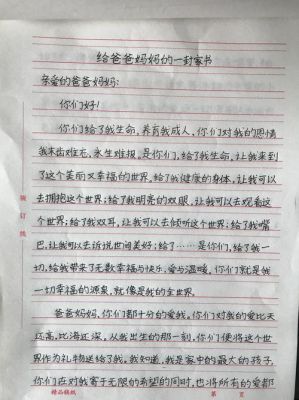 给爸爸妈妈的一封家书
亲爱的爸爸妈妈:
你们好!
你们给了我生命,养育我成人,你们对我的恩情
我木齿难忘、永生难报,是你们,给了我生命,让我来到
了这个美丽又幸福的世界,给了我健康的身体,让我可以
去拥抱这个世界;给了我明亮的双眼,让我可以去观看这
个世界;给了我双耳,让我可以去倾听这个世界;给了我嘴
巴,让我可以去诉说世间美好;给了……是你们,给了我一
切,给我带来了无数幸福与快乐、爱与温暖,你们就是我
一切幸福的源泉,就像是我的全世界。
爸爸妈妈,你们都十分的爱我,你们对我的爱比天
还高,比海还深,从我出生的那一刻,你们便将这个世
界作为礼物送给了我。我知道,我是家中的最大的孩子,
你们在对我寄于无限的希望的同时,也将所有的爱都
装订线
精品稿纸 第 页